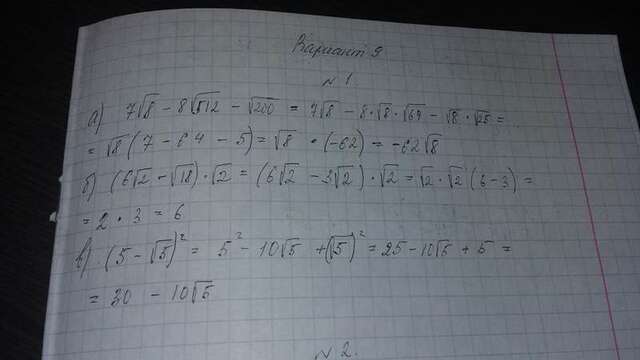 Вариант 9
№ 1.
а) 7√8 - 8√512 - √200 = 7√8 - 8·√8·√64 - √8·√25 =
= √8 (7 - 64 - 5) = √8 · (-62) = -62√8
б) (6√2 - √18)·√2 = (6√2 - 3√2)·√2 = √2·√2 (6-3) =
= 2 · 3 = 6
в) (5 - √5)² = 5² - 10√5 + (√5)² = 25 - 10√5 + 5 =
= 30 - 10√5
№ 2.